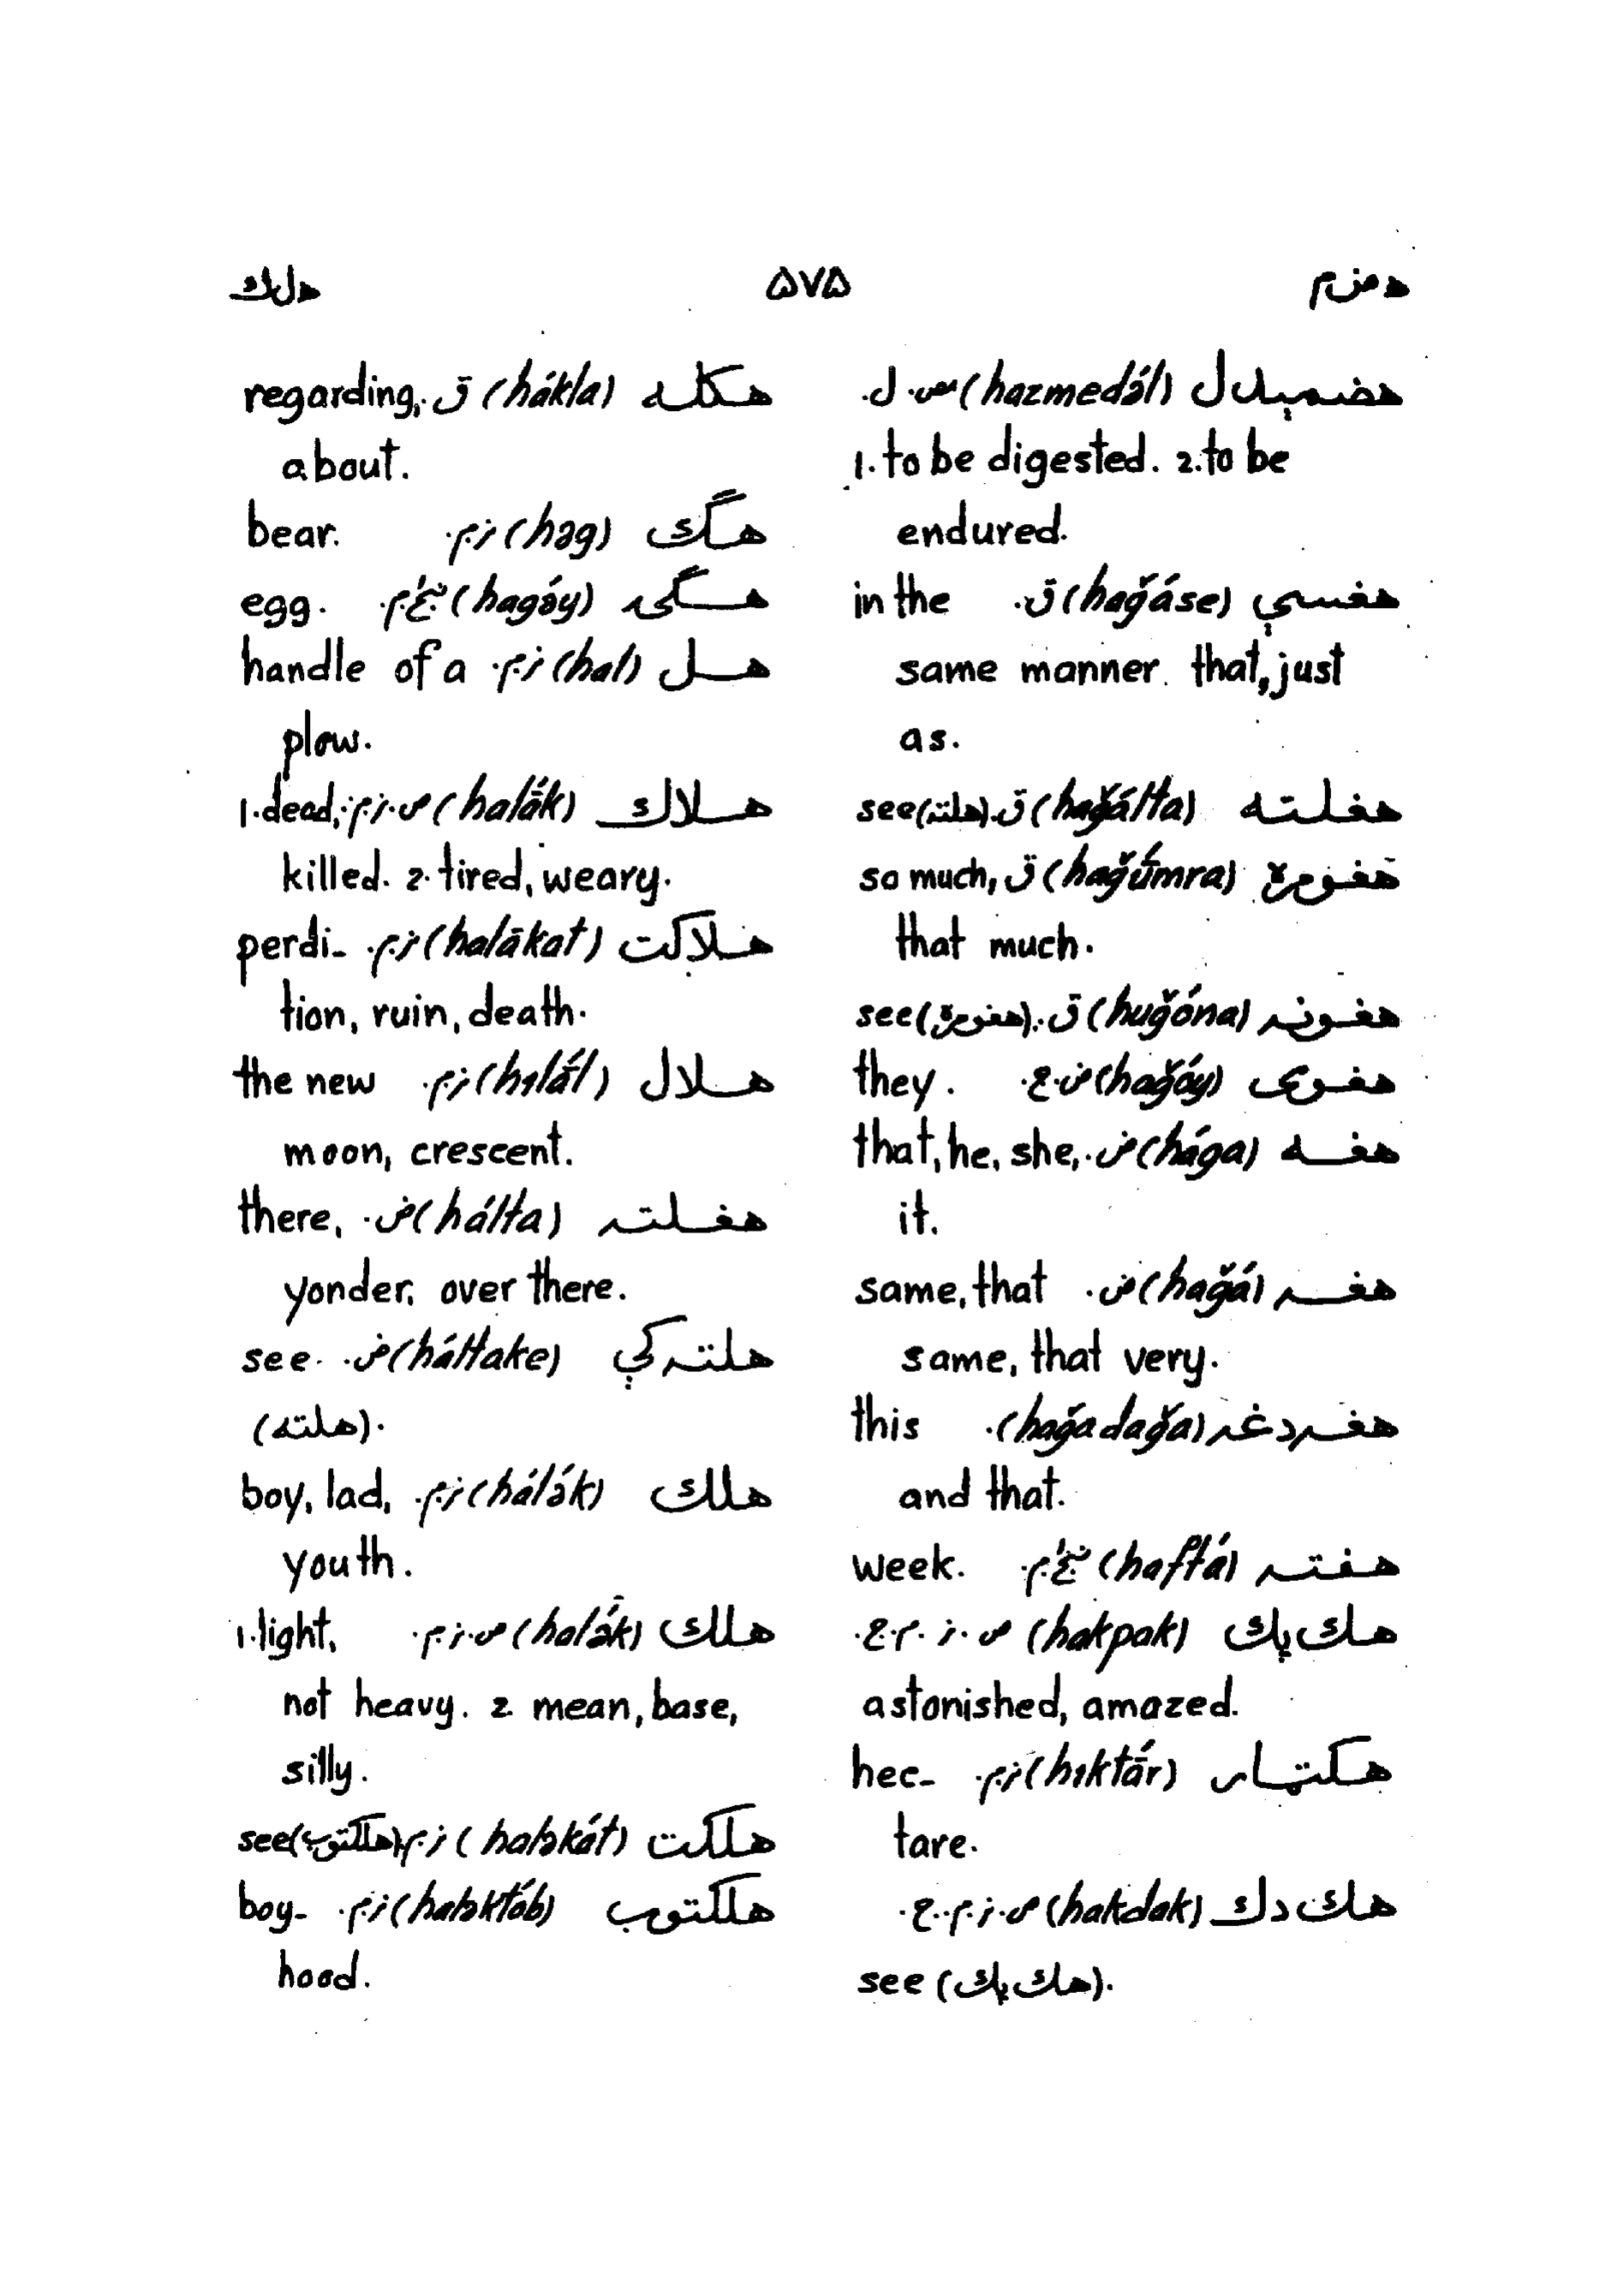 ه ض م ۵۷۵ ه ل ك
هضمېدل (hazmedə́l) ص. ل.
1. to be digested. 2. to be
endured.
هغسې (hağáse) ق. in the
same manner. that, just
as.
هغلته (hağálta) ق. see (هلته).
هغومره (hağū́mra) ق so much,
that much.
هغونه (huğóna) ق. see (هغومره).
هغوى (hağóy) ض. ج. they.
هغه (hága) ض. that, he, she,
it.
هغه (hağá) ض. same, that
same, that very.
هغه دغه (hağadağa). this
and that.
هفته (haftá) week.
هك پك (hakpak) ص. ز. م. ج.
astonished, amazed.
هكتار (hıktā́r) ز.م. hec-
tare.
هك دك (hakdak) ص. ز. م. ج.
see (هك پك).
هكله (hákla) ق. regarding,
about.
هګ (həg) ز.م. bear.
هګۍ (hagə́y) egg.
هل (hal) ز.م. handle of a
plow.
هلاك (halā́k) ص. ز. م. 1. dead,
killed. 2. tired, weary.
هلاكت (halākat) ز.م. perdi-
tion, ruin, death.
هلال (hılā́l) ز.م. the new
moon, crescent.
هغلته (hálta) ض. there,
yonder, over there.
هلته كې (háltake) ض. see
(هلته).
هلك (hálə́k) ز.م. boy, lad,
youth.
هلك (halə́k) ص. ز. م. 1. light,
not heavy. 2. mean, base,
silly.
هلكت (haləkát) ز.م. see (هلكتوب)
هلكتوب (haləktób) ز.م. boy-
hood.